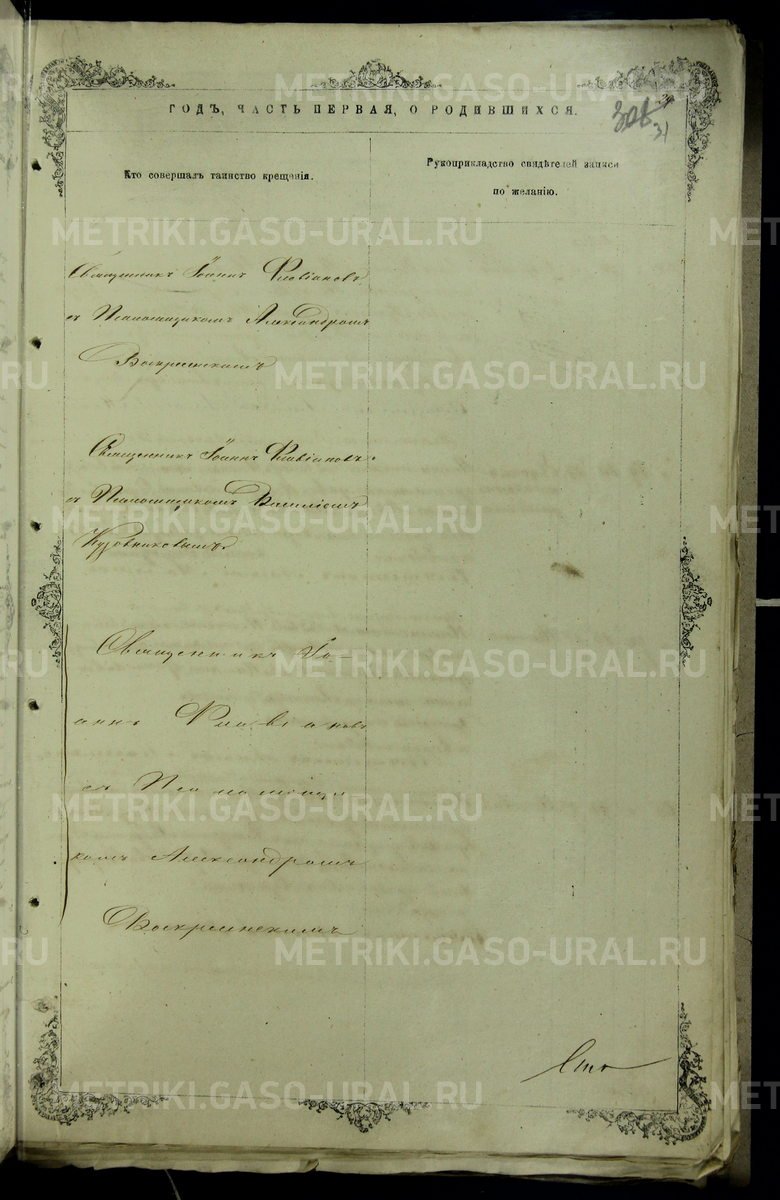 ГОДЪ, ЧАСТЬ ПЕРВАЯ, О РОДИВШИХСЯ.
31
Кто совершалъ таинство крещенія.
Рукоприкладство свидѣтелей записи
по желанію.
Священникъ Іоаннъ Флавіановъ
съ Псаломщикомъ Александромъ
Воскресенскимъ
Священникъ Іоаннъ Флавіановъ
съ Псаломщикомъ Василіемъ
Кузовниковымъ.
Священникъ Іо-
аннъ Флавіановъ
съ Псаломщи
комъ Александромъ
Воскресенскимъ
METRIKI.GASO-URAL.RU